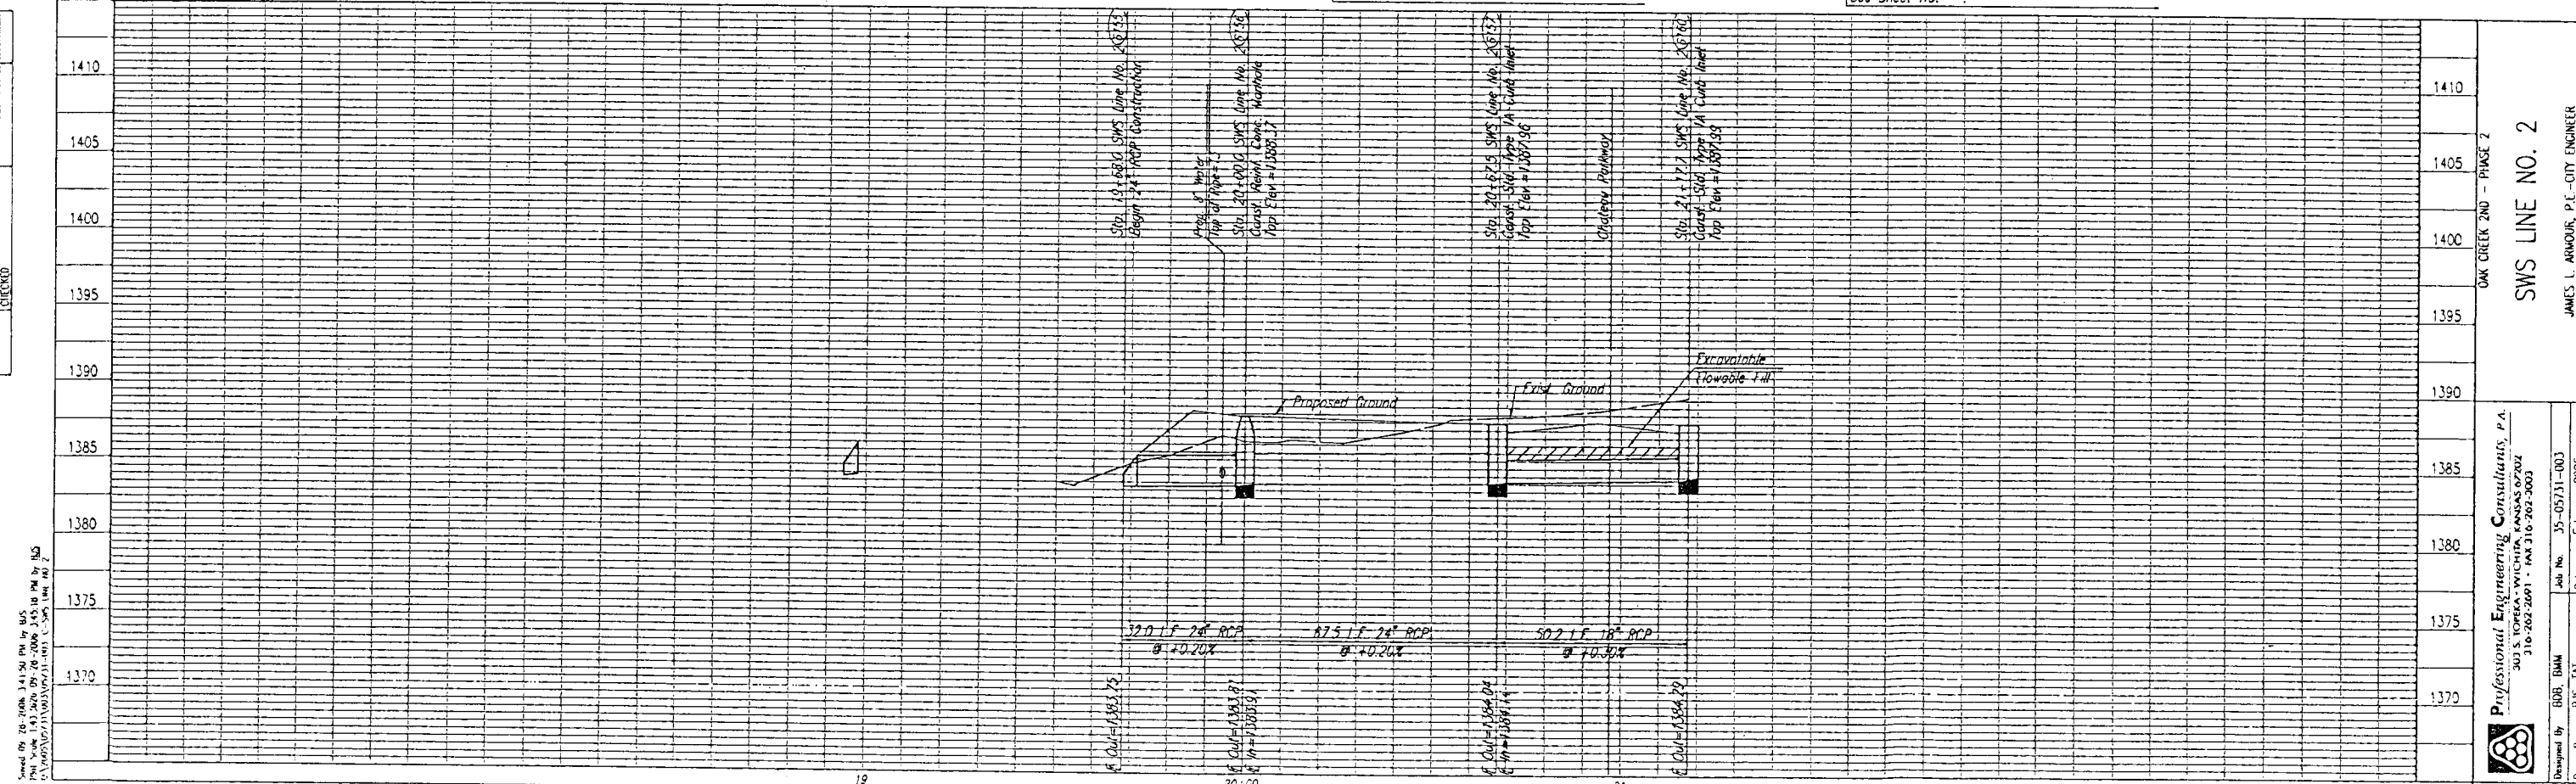 1410
1405
1400
1395
1390
1385
1380
1375
1370
Sta. 19+68.0 SWS Line No. 2
Begin 24" RCP Construction
Prop. 8" Water
Top of Pipe=
Sta. 20+00.0 SWS Line No. 2
Const. Reinf. Conc. Manhole
Top Elev =1388.37
Sta. 20+67.5 SWS Line No. 2
Const. Std. Type 1A Curb Inlet
Top Elev =1387.96
Chateau Parkway
Sta. 21+17.7 SWS Line No. 2
Const. Std. Type 1A Curb Inlet
Top Elev =1387.99
Proposed Ground
Exist. Ground
Excavatable
Flowable Fill
32.0 L.F. 24" RCP
@ +0.20%
67.5 L.F. 24" RCP
@ +0.20%
50.2 L.F. 18" RCP
@ +0.30%
Out=1383.75
Out=1383.81
In=1383.91
Out=1384.04
In=1384.14
Out=1384.29
19
1410
1405
1400
1395
1390
1385
1380
1375
1370
OAK CREEK 2ND - PHASE 2
SWS LINE NO. 2
JAMES L. ARMOUR, P.E.-CITY ENGINEER
Professional Engineering Consultants, P.A.
303 S. TOPEKA • WICHITA, KANSAS 67202
316-262-2691 • FAX 316-262-3003
Designed By BDB, BMM
Job No. 35-05731-003
CHECKED